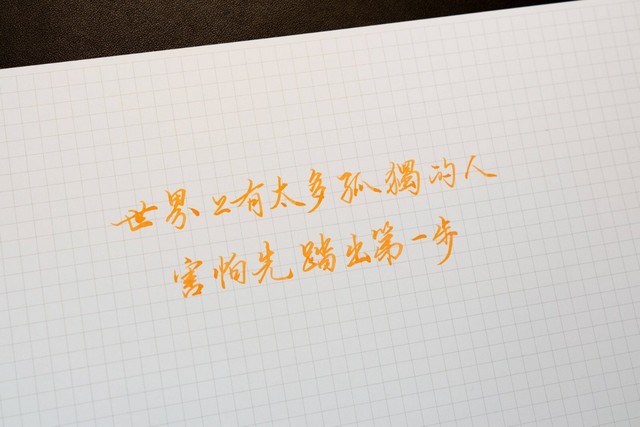 世界上有太多孤獨的人
害怕先踏出第一步